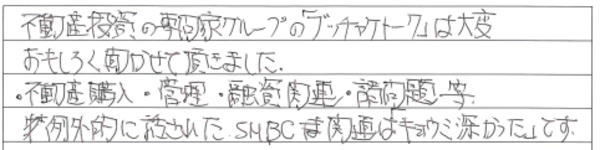 不動産投資の専門家グループの「ブッチャケトーク」は大変
おもしろく聞かせて頂きました.
・不動産購入・管理・融資関連・諸問題等
特例外的に話された SMBC 関連はキョウミ深かった」です